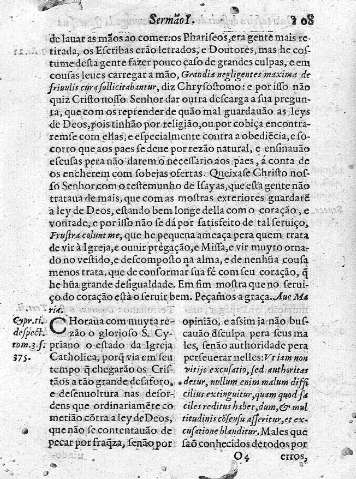 Sermão I. 108
de lauar as mãos ao comer: os Phariseos, era gente mais re-
tirada, os Escribas erão letrados, e Doutores, mas he cos-
tume desta gente fazer pouco caso de grandes culpas, e em
cousas leues carregar a mão, Grandia negligentes maxima de
friuolis cura sollicitabantur, diz Chrysostomo: e por isso não
quiz Cristo nosso Senhor dar outra descarga a sua pregun-
ta, que com os reprender de quão mal guardauão as leys
de Deos, pois tinhão por religião, ou por cobiça encontra-
remse com ellas, e especialmente contra a obediẽcia, e so-
corro que aos paes se deue por rezão natural, e ensinauão
escusas pera não darem o necessario aos paes, á conta de
os encherem com sobejas ofertas. Queixase Christo nos-
so Senhor com o testemunho de Isayas, que esta gente não
trataua de mais, que com as mostras exteriores guardarẽ
a ley de Deos, estando bem longe della com o coração, e
vontade, e por isso não se dá por satisfeito de tal seruiço,
Frustra colunt me, que he pequena ameaça pera quem trata
de vir à Igreja, e ouuir prègação, e Missa, e vir muyto orna-
do no vestido, e descomposto na alma, e de nenhũa cousa
menos trata, que de conformar sua fé com seu coração, q̃
he hũa grande desigualdade. Em fim mostra que no ser-
uiço do coração està o seruir bem. Peçamos a graça. Aue Ma-
ria.
Cypr. ti.
de spect.
tom. 3. f.
375.
CHoraua com muyta re-
zão o glorioso S. Cy-
priano o estado da Igreja
Catholica, porq̃ via em seu
tempo q̃ chegarão os Cris-
tãos a tão grande desaforo,
e desenuoltura nas desor-
dens que ordinariamẽte co-
metião cõtra a ley de Deos,
que não se contentauão de
pecar por fraq̃za, senão por
opinião, e assim ja não bus-
cauão desculpa pera seus ma
les, senão authoridade pera
perseuerar nelles: Vt iam non
vitijs excusatio, sed authoritas
detur, nullum enim malum diffi
cilius extinguitur, quam quod fa
ciles reditus habet, dum, & mul
titudinis cõsensu asseritur, et ex-
cusatione blanditur. Males que
sao conhecidos de todos por
O 4 erros,